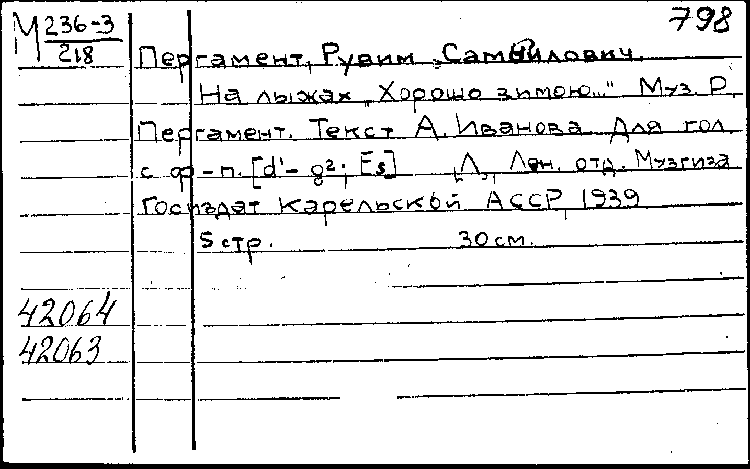 М 236-3
218
798
Пергамент, Рувим Самуилович.
На лыжах „Хорошо зимою..." Муз. Р.
Пергамент. Текст А. Иванова Для гол.
с ф-п. [d'-g²; Es] Л., Лен. отд. Музгиза
Госиздат Карельской АССР, 1939
5 стр. 30 см.
42064
42063